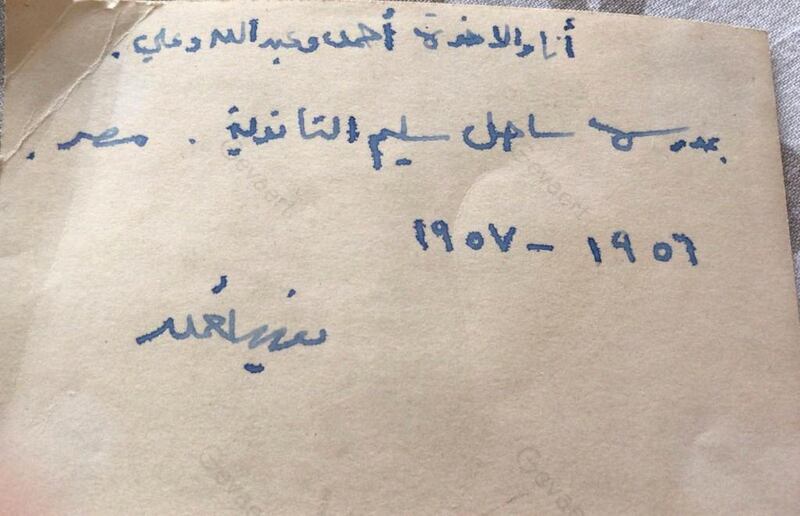 أنا والاخوة أحمد وعبدالله وعلي .
بمدرسة ساحل سليم الثانوية . مصر .
١٩٥٦ - ١٩٥٧
Gevaert
Gevaert
Gevaert
Gevaert